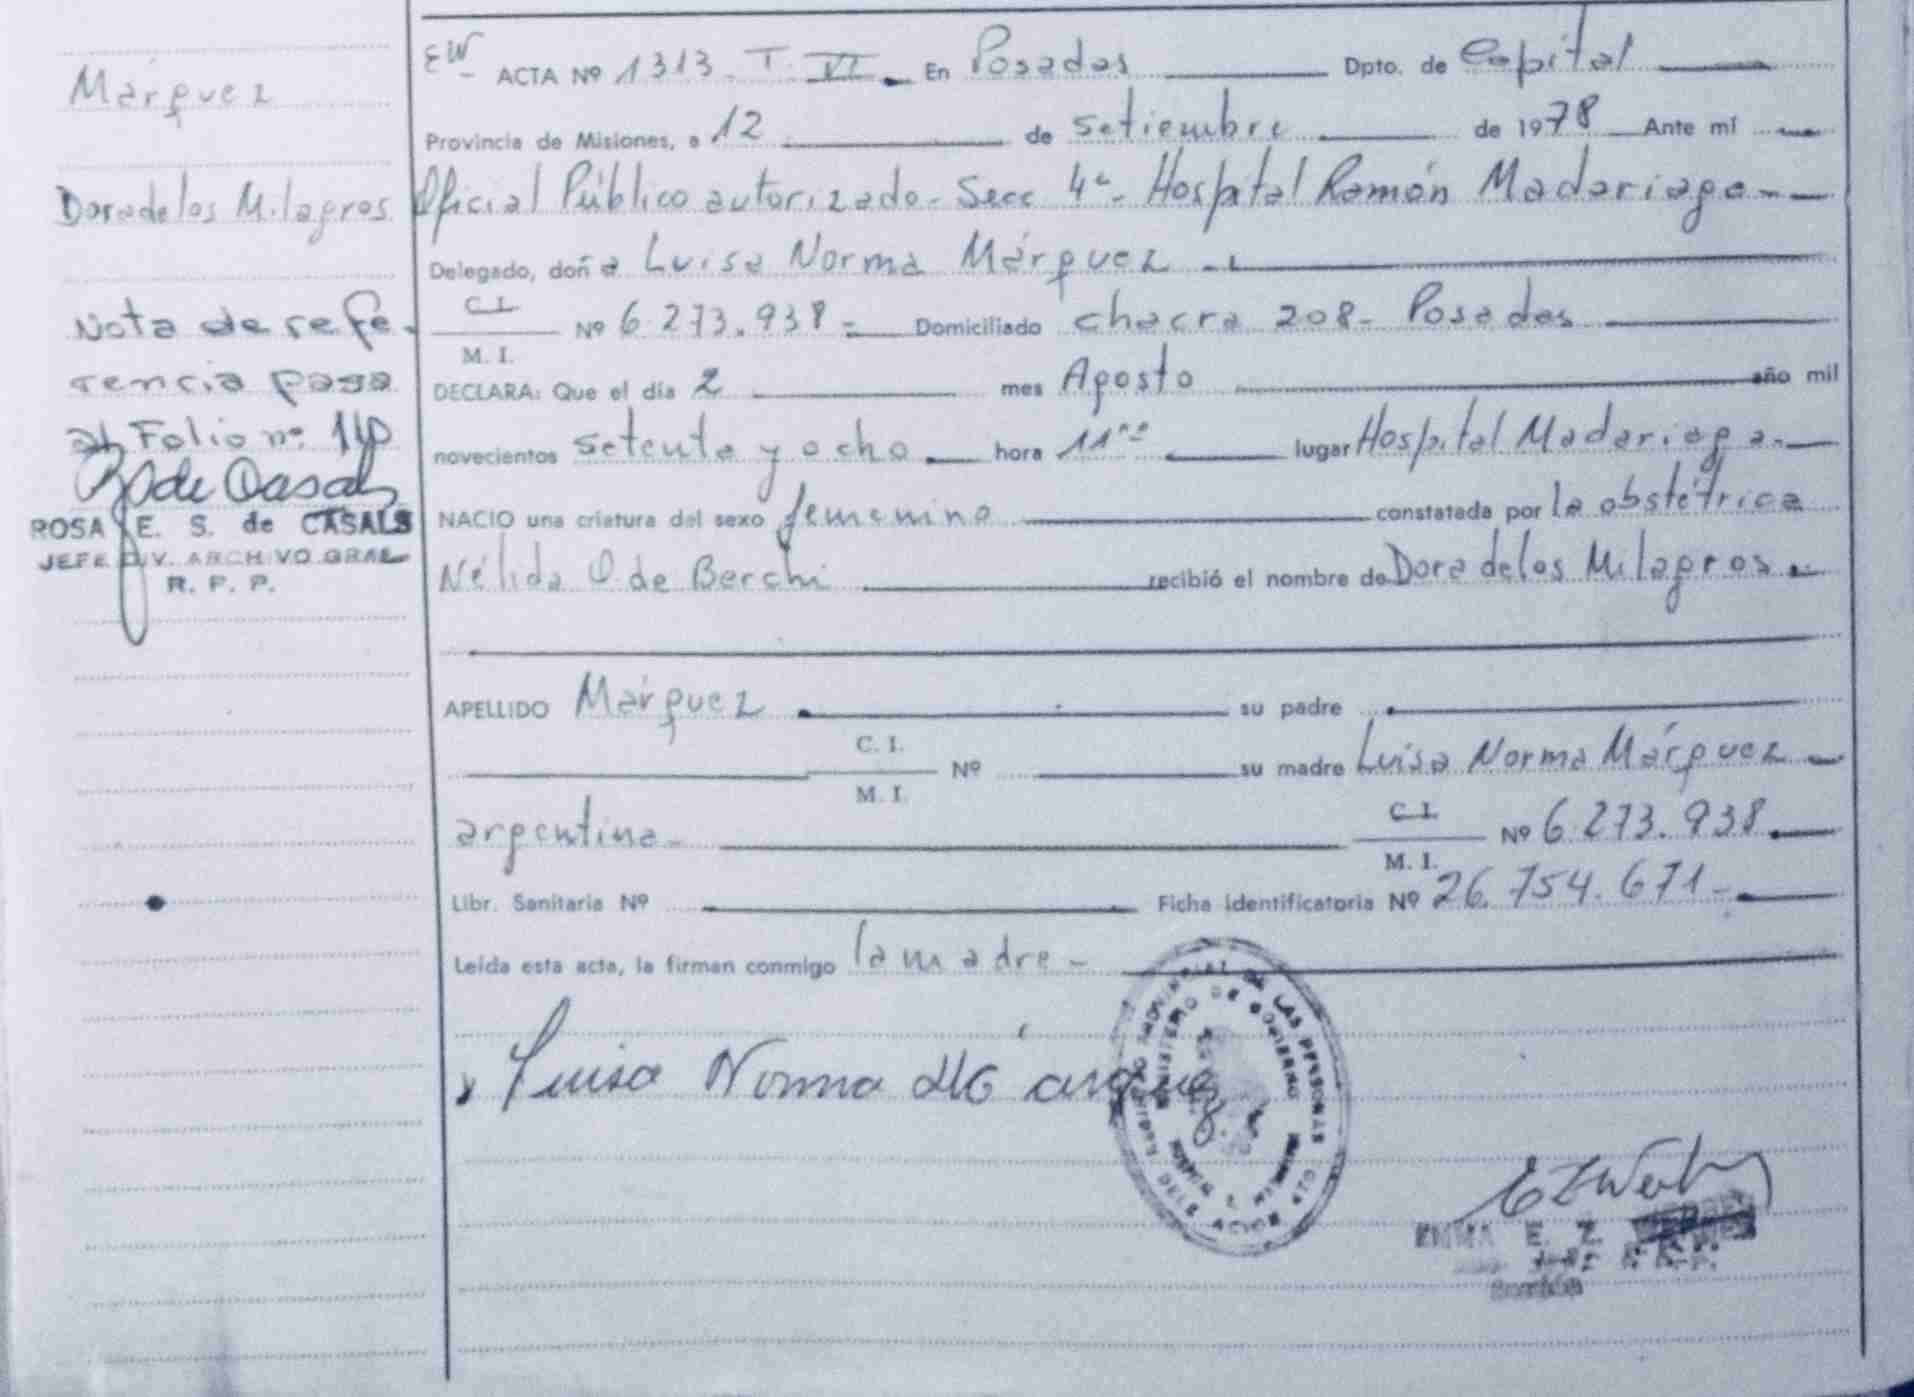 Márquez
Dora de los Milagros
Nota de refe-
rencia pasa
al Folio nº 110
ROSA E. S. de CASALS
JEFE DIV. ARCHIVO GRAL
R. P. P.
EW
ACTA Nº 1313. T. VI. En Posadas Dpto. de Capital
Provincia de Misiones, a 12 de setiembre de 1978 Ante mí
Oficial Público autorizado - Secc 4ª - Hospital Ramón Madariaga -
Delegado, doña Luisa Norma Márquez -
C. I.
Nº 6.273.938 - Domiciliado chacra 208 - Posadas
M. I.
DECLARA: Que el día 2 mes Agosto año mil
novecientos setenta y ocho hora 11ºº lugar Hospital Madariaga -
NACIO una criatura del sexo femenino constatada por la obstétrica
Nélida O. de Berchi recibió el nombre de Dora de los Milagros
APELLIDO Márquez su padre
C. I.
Nº su madre Luisa Norma Márquez
M. I.
argentina - C. I. Nº 6.273.938
M. I.
Libr. Sanitaria Nº Ficha identificatoria Nº 26.754.671 -
Leída esta acta, la firman conmigo la madre -
Luisa Norma Márquez
DE LAS PERSONAS
MINISTERIO DE GOBIERNO
E. Z.